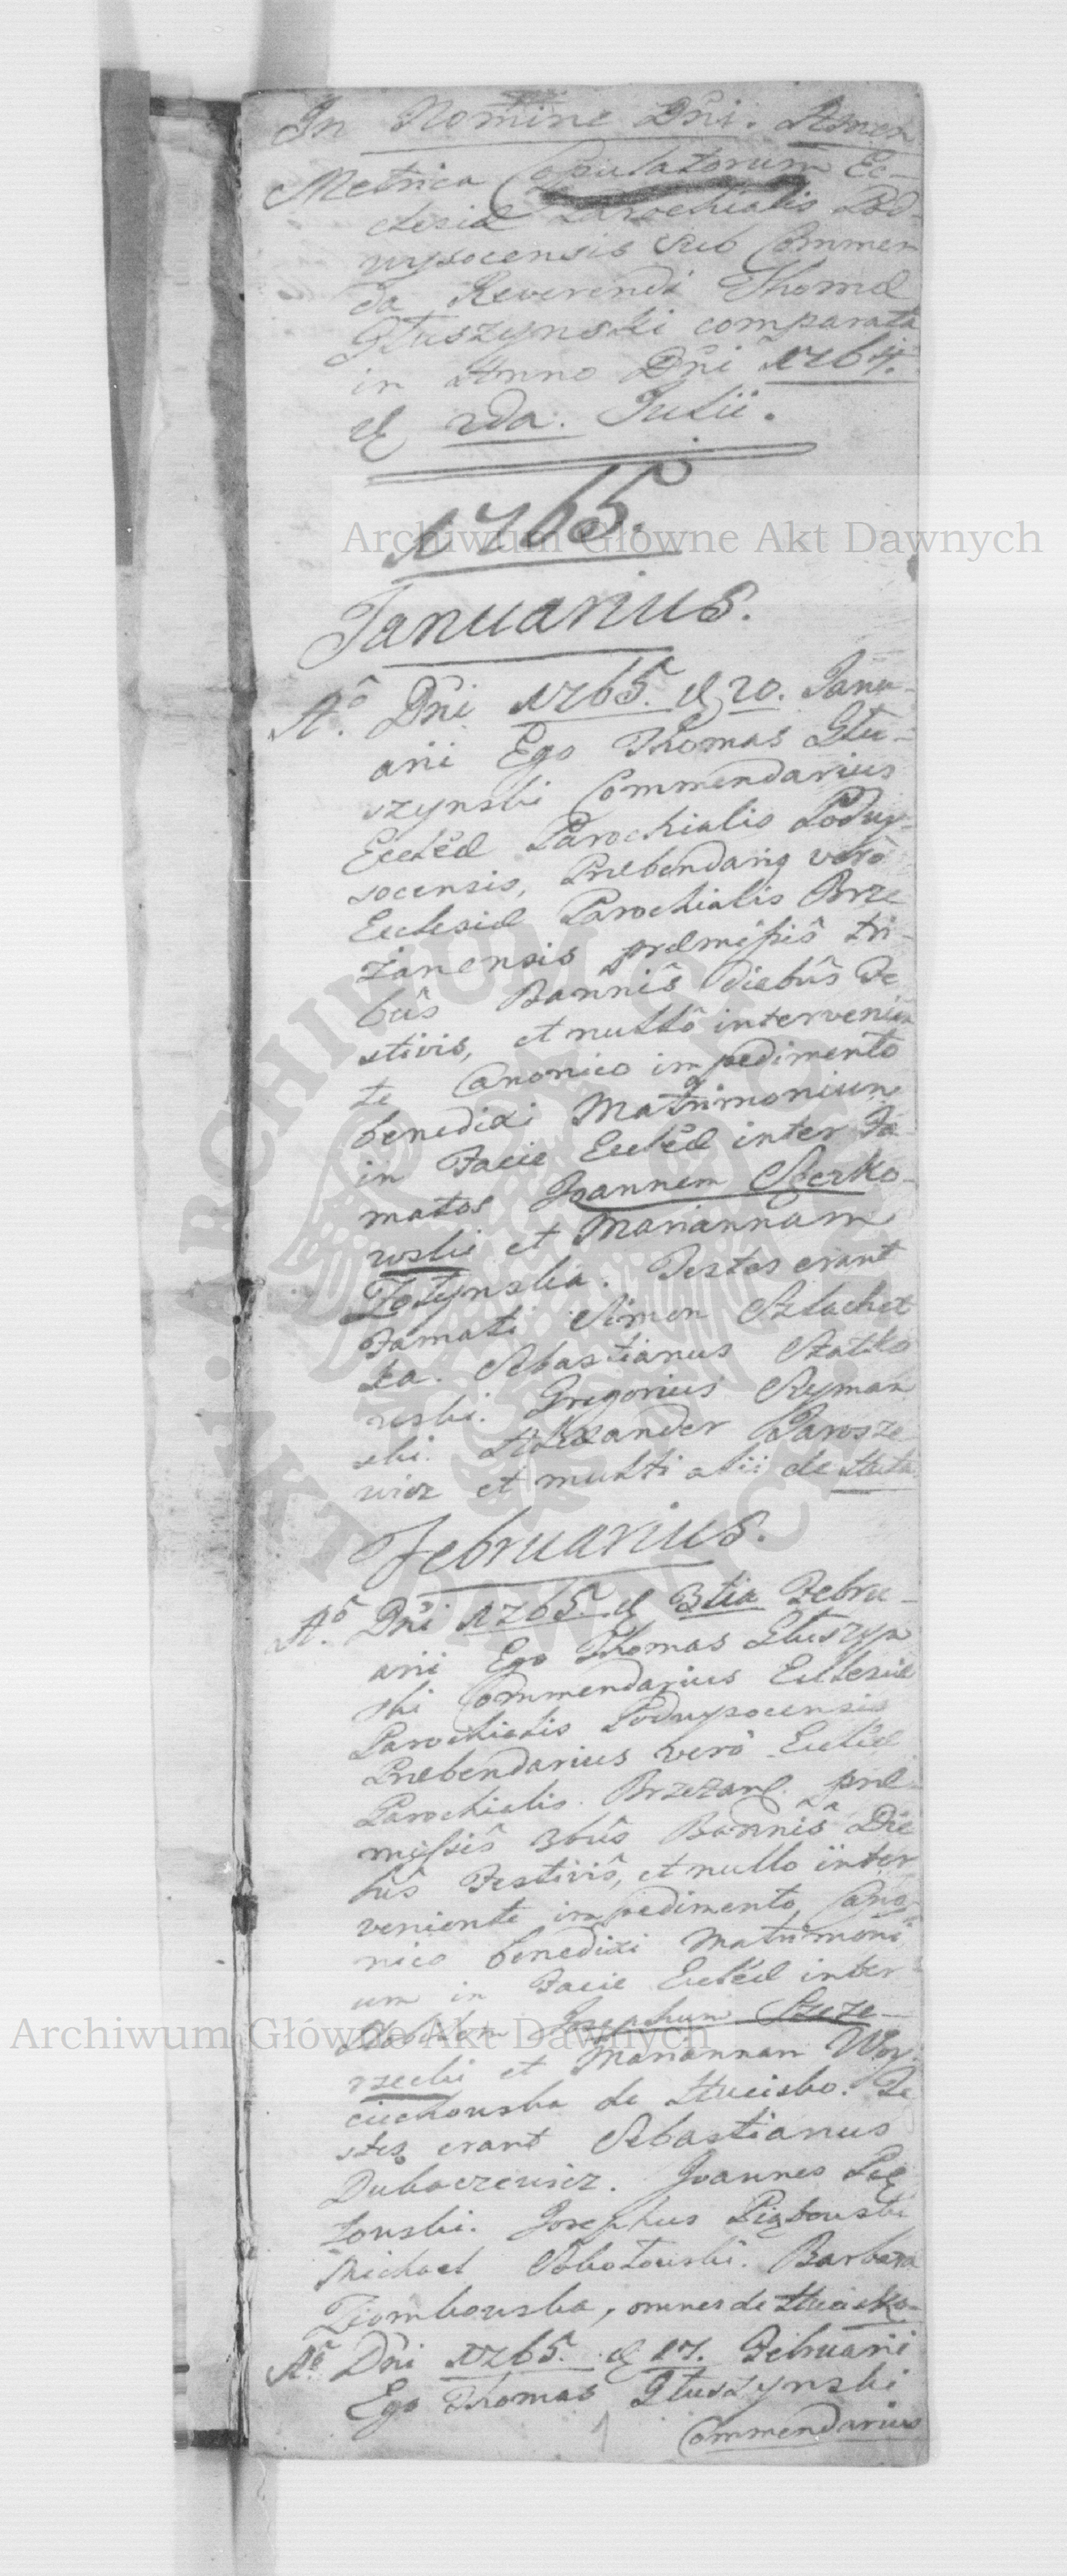 In Nomine Dñi. Amen
Metrica Copulatorum Ec-
clesiæ Parochialis Pod-
wysocensis sub Commen
da Reverendi Thomæ
Głuszynski comparata
in Anno Dñi 1764.
d 2da. Julii.
1765.
Januarius.
Aº. Dñi 1765. d 20. Janu-
arii Ego Thomas Głu-
szynski Commendarius
Eccłæ Parochialis Podwy-
socensis, Præbendariq verò
Ecclesiæ Parochialis Brze
zanensis præmissis tri-
bûs Bannîs diebûs Fe
stivis, et nullô intervenien
te Canonico impedimento
benedixi Matrimonium
in Facie Eccłæ inter Fa-
matos Joannem
wski et Mariannam
Testes erant
Famati Simon Szlachet
ka. Sebastianus
wski. Gregorius Ryman
ski. Alexander Jarosze
wicz et multi alii de
Februarius.
Aº. Dñi 1765. d 3tia Febru-
arii Ego Thomas Głuszyn
ski Commendarius Ecclesiæ
Parochialis Podwysocensis
Præbendarius verò Eccłæ
Parochialis. Brzezan. præ
missîs 3bûs Bannîs Die
bûs Festivîs, et nullo inter
veniente impedimento Cano-
nico benedixi Matrimoni
um in Facie Eccłæ inter
Josephum Szcze-
et Mariannam Woy-
ciechowska de Hucisko. Te
stes erant Sebastianus
Dubaczewicz. Joannes
towski. Josephus Piątkowski
Michael Sobotowski. Barbara
Ziombowska, omnes de Huciska
Aº. Dñi 1765. d 17. Februarii
Ego Thomas Głuszynski
1 Commendarius
Archiwum Główne Akt Dawnych
Archiwum Główne Akt Dawnych